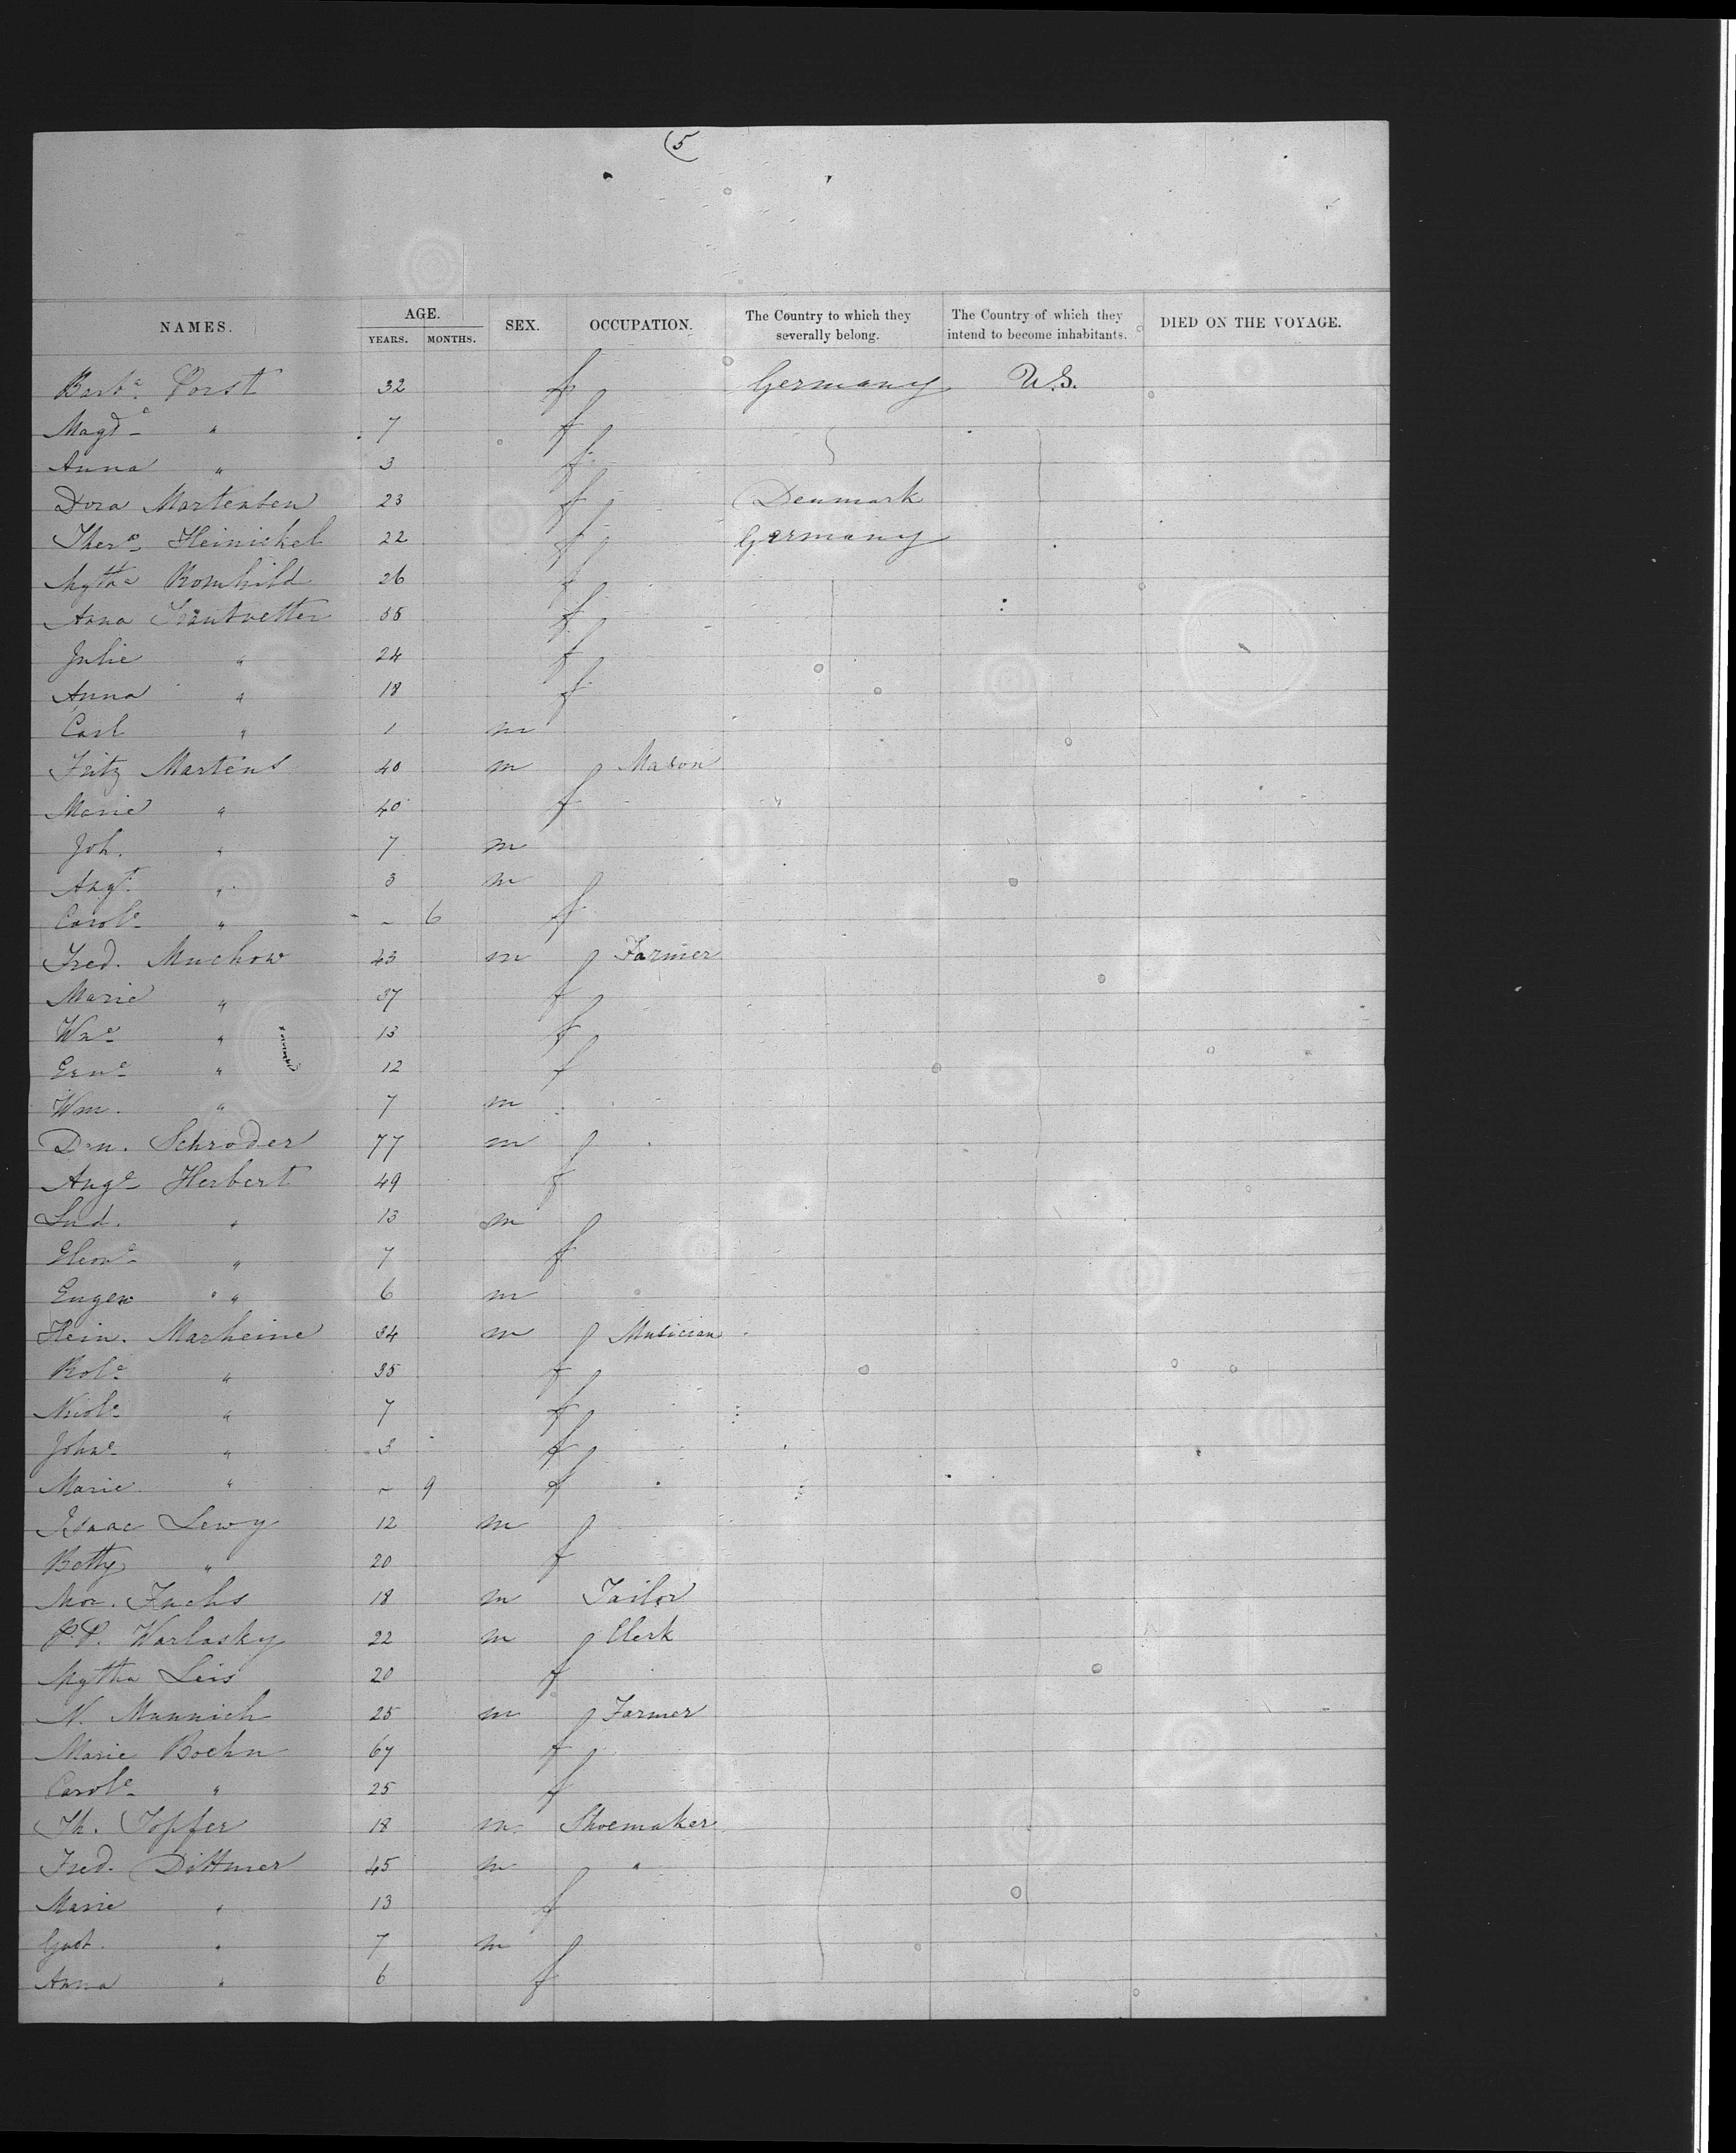 (5
NAMES. AGE. YEARS. MONTHS. SEX. OCCUPATION. The Country to which they severally belong. The Country of which they intend to become inhabitants. DIED ON THE VOYAGE.
Barbᵃ Porst 32 f Germany U.S.
Magdᵃ " 7 f
Anna " 3 f
Dora Martensen 23 f Denmark
Therᵉ Heinickel 22 f Germany
Romhild 26 f
Anna Trautvetter 55 f
Julie " 24 f
Anna " 18 f
Carl " 1 m
Fritz Martens 40 m Mason
Marie " 40 f
Joh. " 7 m
Augᵗ " 3 m
Carolᵉ " - 6 f
Fred. Muchow 43 m Farmer
Marie " 37 f
Wⁿᵉ " 13 f
Ernᵉ " 12 f
Wm. " 7 m
Schroder 77 m
Augᵉ Herbert 49 f
Lud. " 13 m
Eleonᵉ " 7 f
Eugen " 6 m
Hein. Marheine 34 m Musician
Robᵉ " 35 f
" 7 f
Johⁿᵉ " 3 f
Marie " - 9 f
Isaac Lewy 12 m
Betty " 20 f
Mor. Fuchs 18 m Tailor
P.P. Warlasky 22 m Clerk
Mgtha Leis 20 f
N. Munnich 25 m Farmer
Marie Boehn 67 f
Carolᵉ " 25 f
Th. Topfer 18 m Shoemaker
Fred. Dittmer 45 m "
Marie " 13 f
Gust. " 7 m
Anna " 6 f